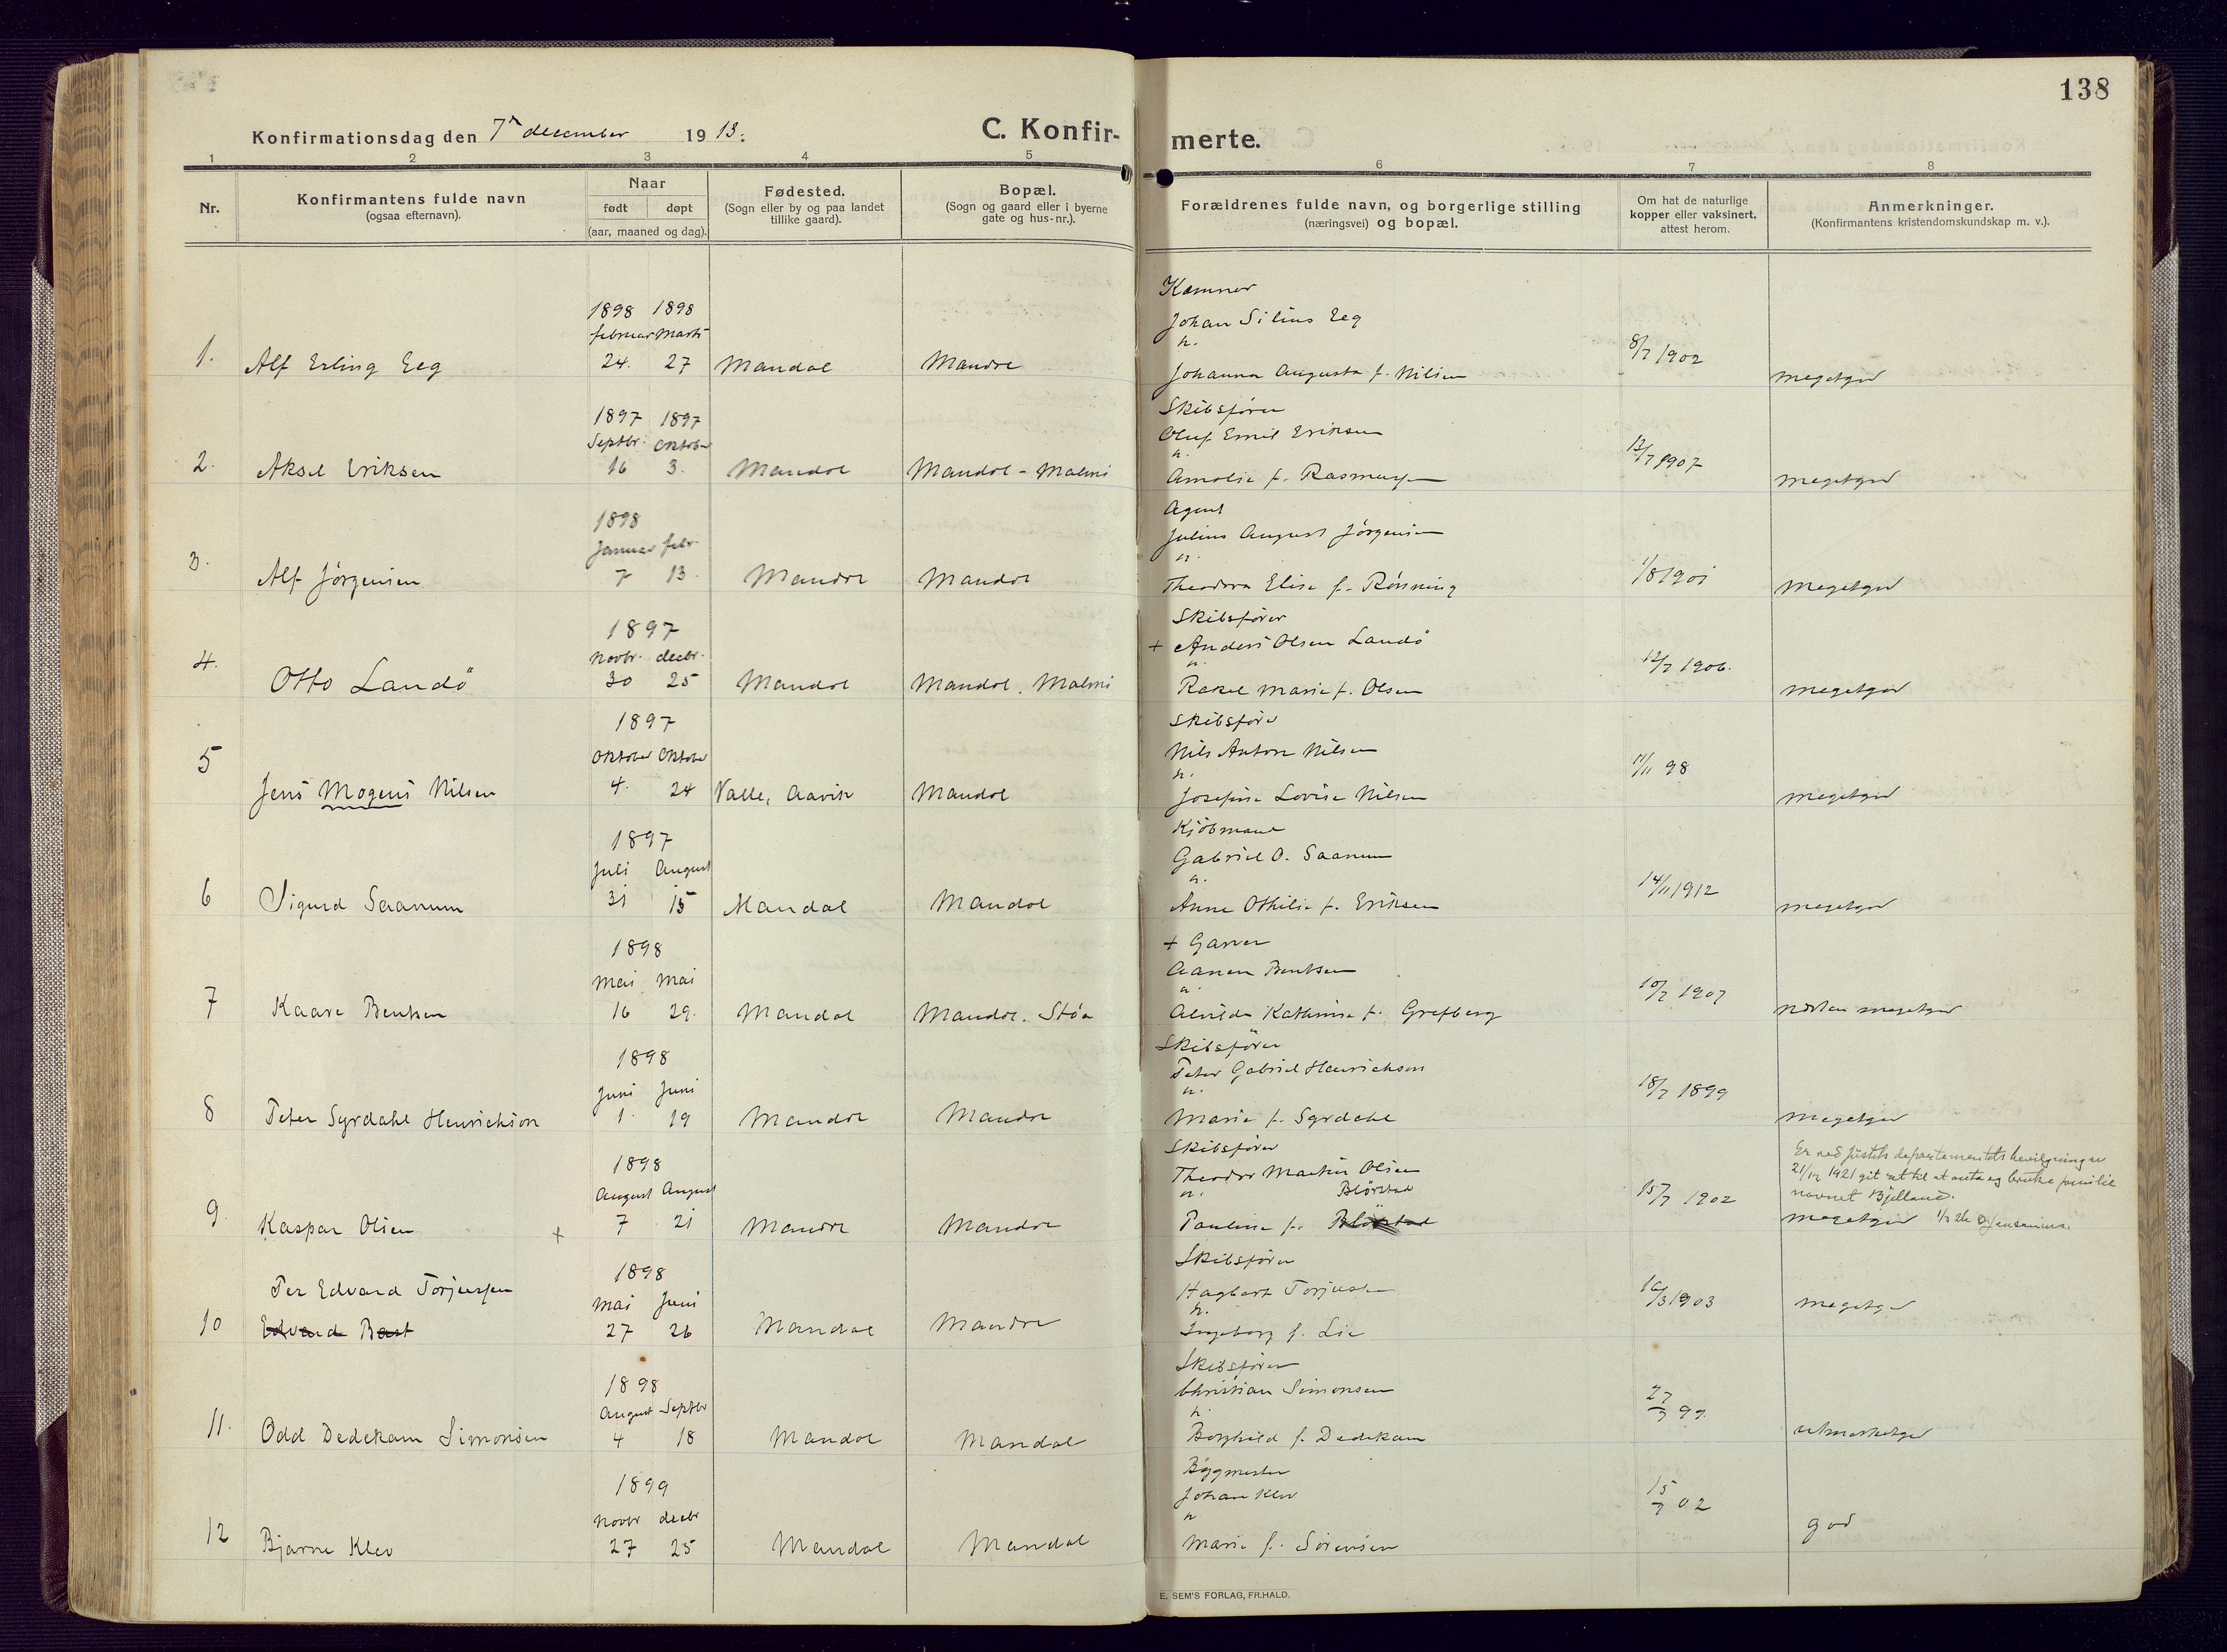 138
Konfirmationsdag den 7de december 1913.
C. Konfir-
merte.
1 2 3 4 5 6 7 8
Nr.
Konfirmantens fulde navn
(ogsaa efternavn).
Naar
født døpt
(aar, maaned og dag).
Fødested.
(Sogn eller by og paa landet
tillike gaard).
Bopæl.
(Sogn og gaard eller i byerne
gate og hus-nr.).
Forældrenes fulde navn, og borgerlige stilling
(næringsvei) og bopæl.
Om hat de naturlige
kopper eller vaksinert,
attest herom.
Anmerkninger.
(Konfirmantens kristendomskundskap m. v.).
Kæmner
1898 1898
Johan Silius Eeg
februar Marts
o.
8/7 1902
1. Alf Erling Eeg 24. 27 Mandal Mandal Johanna Augusta f. Nilsen megetgod
1897 1897 Skibsfører
Septbr. Oktober Oluf Emil Eriksen
o.
12/7 1907
2. Aksel Eriksen 16 3. Mandal Mandal - Malmø Amalie f. Rasmussen megetgod
1898 Agent
Januar febr. Julius August Jörgensen
o.
3. Alf Jörgensen 7 13 Mandal Mandal Theodora Elise f. Rönning 1/8 1901 Megetgod
1897 Skibsfører
+ Anders Olsen Landö
Novbr. decbr.
o.
12/7 1906.
4. Otto Landö 30 25 Mandal Mandal. Malmø Rakel Marie f. Olsen megetgod
1897 Skibsfører
Oktober Oktober Nils Anton Nilsen
o.
11/11 98
5 Jens Mogens Nilsen 4. 24 Valle, Aavik Mandal Josefine Lovise Nilsen megetgod
1897 Kjöbmand
Juli August Gabriel O. Saanum
o.
14/11 1912
6 Sigurd Saanum 31 15 Mandal Mandal Anne Othilie f. Eriksen megetgod
1898 + Garver
Mai Mai Aanen Bentsen
o.
10/7 1907
7 Kaare Bentsen 16 29. Mandal Mandal. Støa Alvilde Kathrine f. Grefberg næsten megetgod
1898 Skibsfører
Juni Juni Peter Gabriel Henrichsen
o.
18/7 1899
8 Peter Syrdahl Henrichsen 1. 19 Mandal Mandal Marie f. Syrdahl megetgod
1898 Skibsfører
Er ved Justitsdepartementets bevilgning av
21/12 1921 git ret til at anta og bruke familie
navnet Bjelland.
August August Theodor Martin Olsen
o. Blörstad
15/7 1902
9. Kaspar Olsen + 7 21 Mandal Mandal Pauline f. Blörstad megetgod
1898 Skibsfører
Per Edvard Torjussen
Mai Juni Hagbart Torjussen
o.
16/3 1903 megetgod
10 Edvard Bast 27 26 Mandal Mandal Ingeborg f. Lie
1898 Skibsfører
August Septbr Christian Simonsen
o.
27/7 99.
11. Odd Dedekam Simonsen 4 18 Mandal Mandal Borghild f. Dedekam utmerketgod
1899 Byggmester
Johan Klev
Novbr decbr
o
15/7 02
12 Bjarne Klev 27 25 Mandal Mandal Marie f. Sörensen god
E. SEM'S FORLAG, FR.HALD.